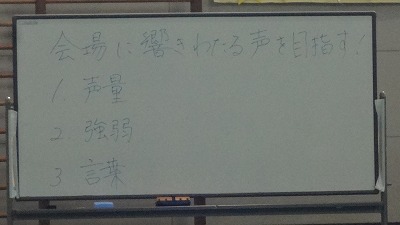 会場に響きわたる声を目指す!
1. 声量
2. 強弱
3 言葉